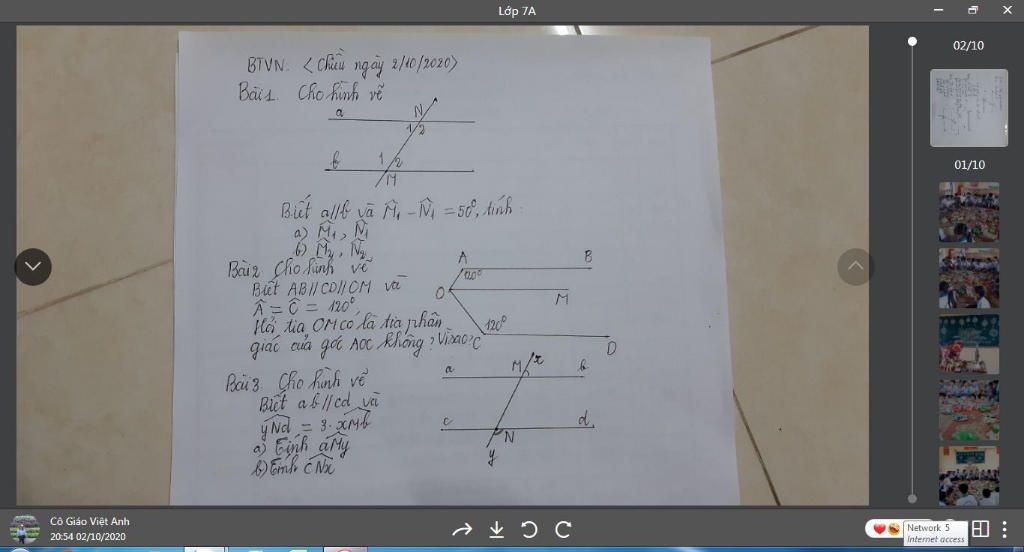 Lớp 7A
02/10
01/10
BTVN: <Chiều ngày 2/10/2020>
Bài 1. Cho hình vẽ
a
N
1 2
b
1 2
M
Biết a//b và M̂₁ - N̂₁ = 50⁰, tính:
a) M̂₁, N̂₁
b) M̂₂, N̂₂
Bài 2 Cho hình vẽ
Biết AB//CD//OM và
Â = Ĉ = 120⁰,
Hỏi tia OM có là tia phân
giác của góc AOC không? Vì sao?
A B
120⁰
O M
120⁰
C D
Bài 3 Cho hình vẽ
Biết ab//cd và
yNd = 3. xMb
a) Tính aMy
b) Tính cNx
x
a M b
c d
N
y
Cô Giáo Việt Anh
20:54 02/10/2020
Network 5
Internet access